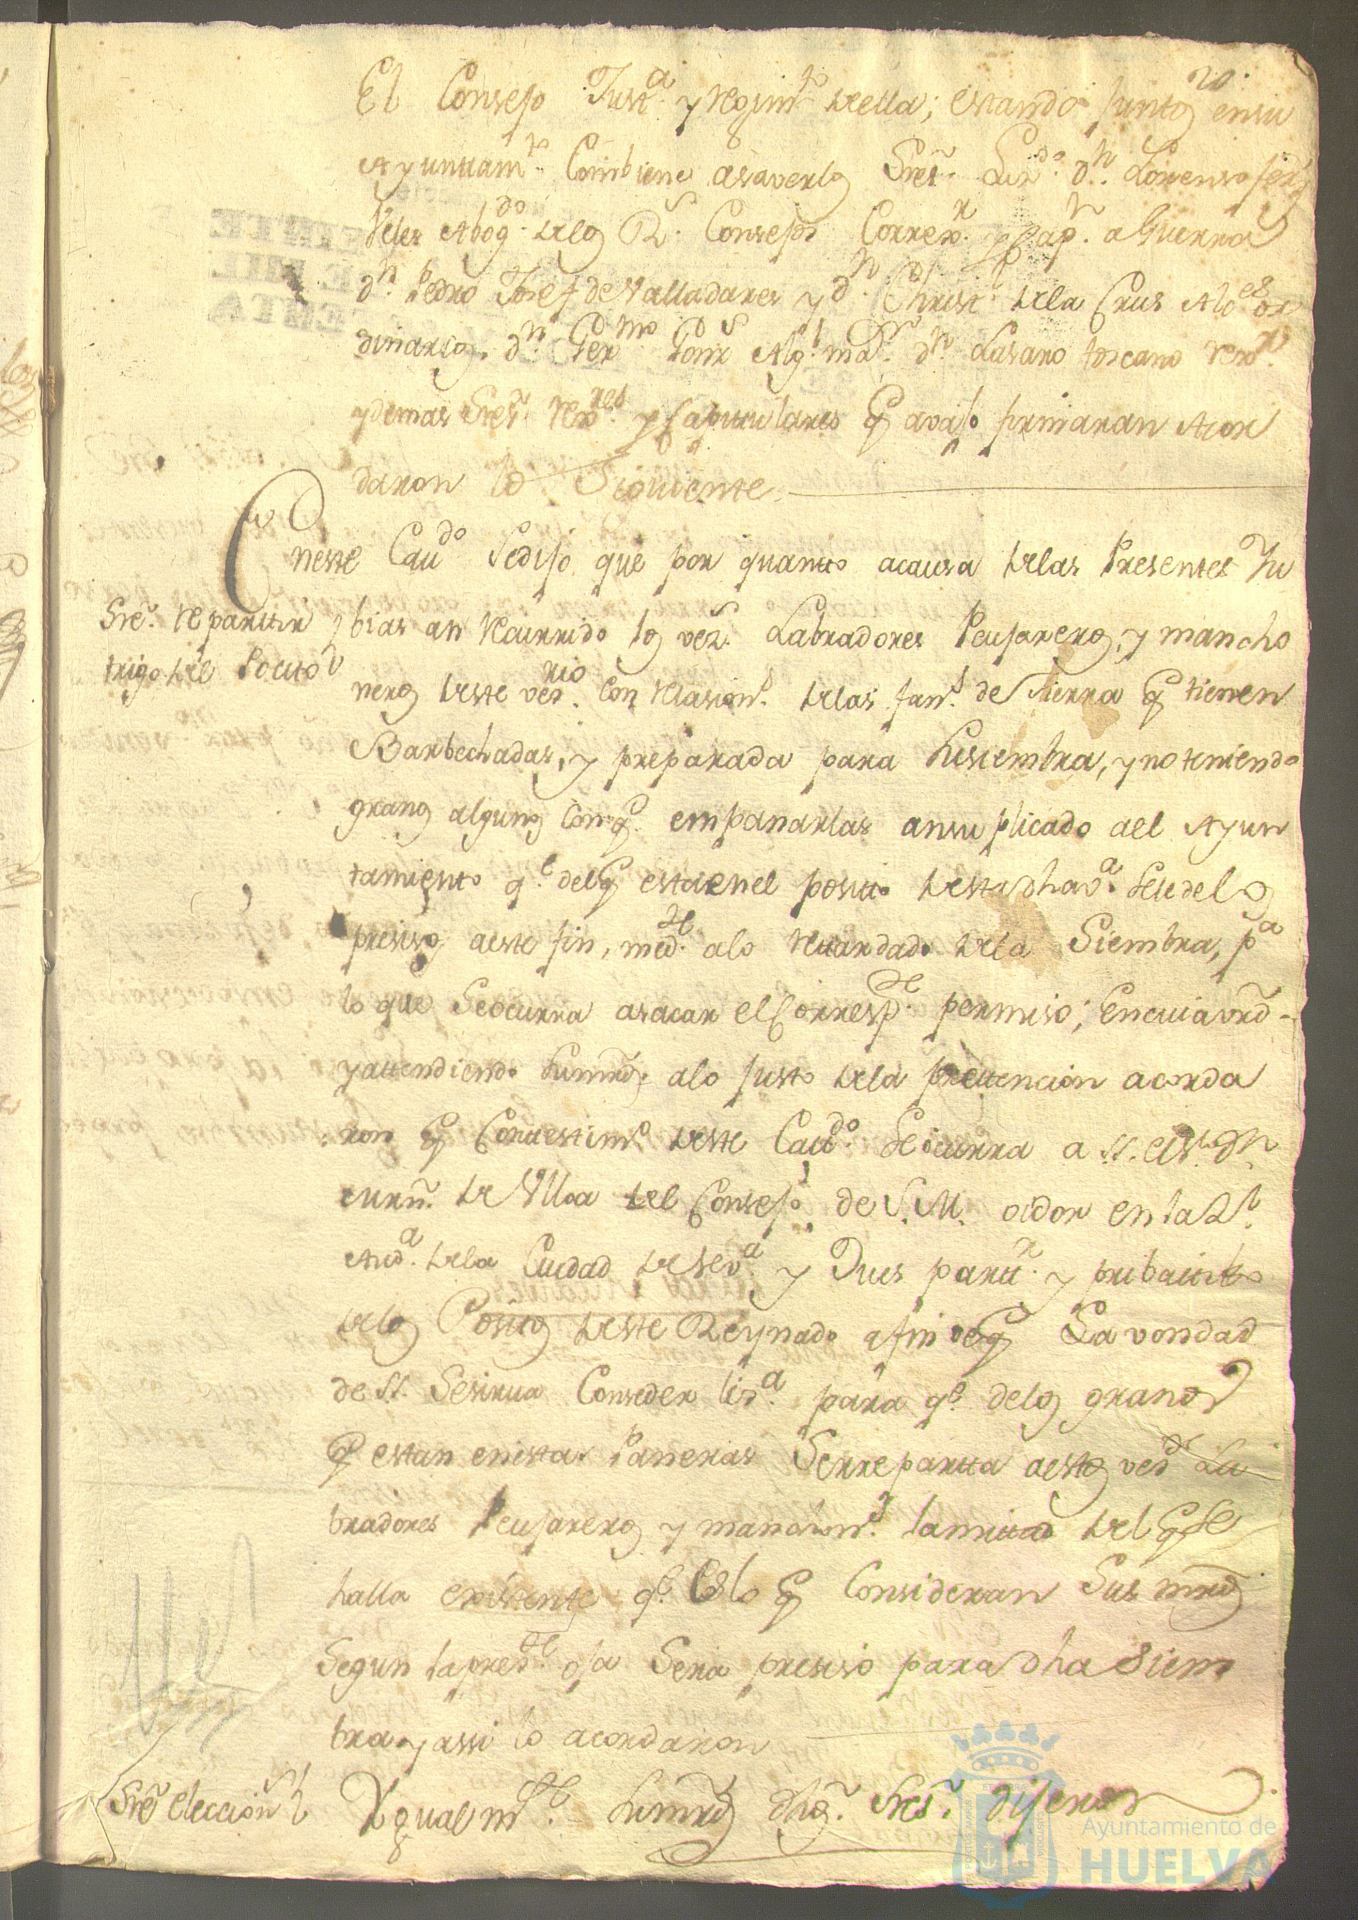 20.
El Consejo Justa. y Regimto. de ella; estando juntos en su
Ayuntamto. Combiene asaver los Sres. Licdo. dn. Lorenso ferz
Veles Abogdo. de los Rs. Consejos Correxr. y Capn. a Guerra
dn. Pedro Josef de Valladares y dn. Christl. de la Crus Alces. or
dinarios, dn. Germo Alg.l mar. dn. Lasaro toscano rexor.
y demas Sres. rexores. y Capitulares q avajo firmaran Acor
daron lo Siguiente
En este Cavdo. Sedijo que por quanto acausa de las Presentes llu
Sre. repartir
trigo del Pocito
bias an recurrido los vez. Labradores Peujareros, y mancho
neros de este vesrio. Con relasion. de las fans. de tierra q tienen
Barbechadas, y preparada para su siembra, y no teniendo
granos algunos con q. empanarlas an suplicado ael Ayun
tamiento qe. del q esta en el posito de esta dha va. Se le de los
presiso a este fin, medte. alo retardado de la Siembra, pa
lo que Se ocurra a sacar el Correspte. permiso; En cuia vrd
y attendiendo Sus mrds. alo justo de la prettencion acorda
ron q Con testimo. de este Cavdo. Se ocurra a SS. el Sr. Dn
de Ulloa del Consejo de S.M. oidor en la Rl.
Auda. de la Ciudad de Seva y Jues partir. y pribattibo
de los Positos de este Reynado a fin de q La vondad
de SS. Se sirva Conseder liza. para qe. de los granos
q estan en estas Paneras Se rreparta a estos vesos La
bradores Peujareros y manchons. la mittad del q Se
halla existente qe. es lo q Consideran Sus mrds
Segun la presente oja Sera presiso para dha Siem
bra y assi lo acordaron
Sre eleccion
Ygualmte. Sus mrds dhos. Sres. dijeron
Ayuntamiento de
HUELVA